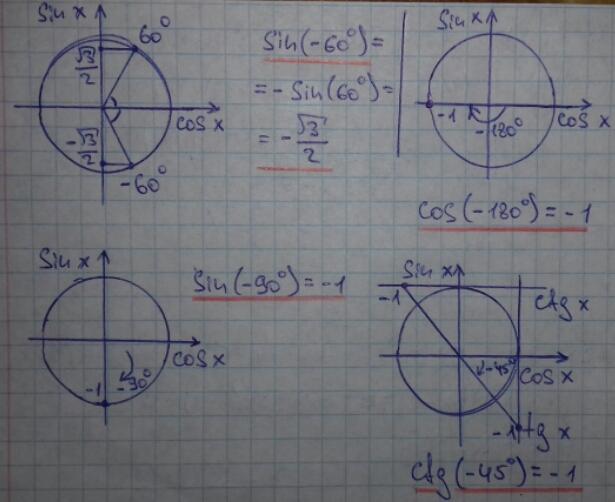 Sin x
60°
√3/2
cos x
-√3/2
-60°
Sin(-60°)=
= - Sin(60°)=
= - √3/2
Sin x
-1
-180°
cos x
cos(-180°) = -1
Sin x
cos x
-1
-90°
Sin(-90°) = -1
Sin x
-1
ctg x
-45°
cos x
-1
tg x
ctg(-45°) = -1